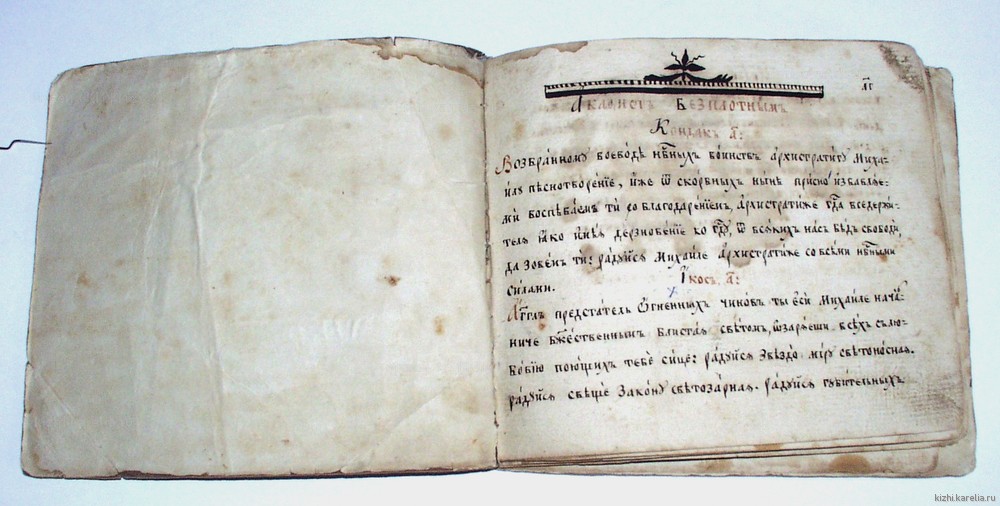 л҃г
Акаѳистъ Безплотнымъ
Кондакъ а҃:
Возбранному воеводѣ нб҃ныхъ воинствъ архистратигу миха-
илу пѣснотворе́нїе, и҆́же ѿ скорбныхъ ны́нѣ при́сно и҆збавлѧе-
ми воспѣваемъ ти со благодаренїемъ, архистрати́же гдⷭ҇а вседержи-
телѧ ꙗ҆ко и҆мѣ́ѧ дерзнове́нїе ко гдⷭ҇у, ѿ всѧкихъ на́съ бѣ́дъ свободи,
да зовемъ ти: ра́дуйсѧ михаиле архистрати́же со всѣми нб҃ными
силами.
І҆косъ, а҃:
Агг҃лъ предстатель ѻ҆́гненныхъ чиновъ ты є҆сѝ михаиле нача́л-
ниче бж҃е́ственнымъ блиста́ѧ свѣтомъ, ѡ҆зарѧ́еши всѣ́хъ съ лю-
бо́вїю пою́щихъ тебѐ си́це: ра́дуйсѧ ѕвѣздо́ мі́ру свѣтоно́сная.
ра́дуйсѧ свѣще зако́ну свѣтоза́рная. ра́дуйсѧ губи́тельныхъ
kizhi.karelia.ru